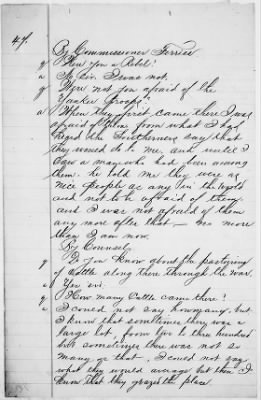 47.
By Commissioner Ferriss
q Were you a Rebel?
a No Sir. I was not.
q Were not you afraid of the
Yankee troops?
a When they first came there I was
afraid of them from what I had
heard the Southerners say that
they would do to me, and until I
saw a man who had been among
them. he told me they were as
nice people as any in the world
and not to be afraid of them.
and I was not afraid of them
any more after that — no more
than I am now.
By Counsel,
q Do you know about the pasturing
of cattle along there through the war.
a Yes sir.
q How many cattle came there?
a I could not say how many, but
I know that sometimes there was a
large lot, from two to three hundred
but sometimes there was not so
many as that, I could not say
what they would average but then I
know that they grazed the place.